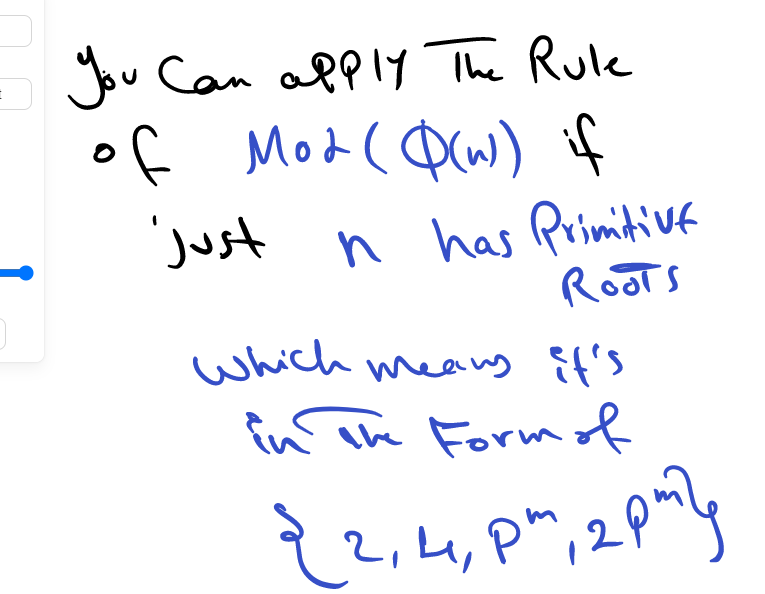 You Can apply The Rule
of Mod(Φ(n)) if
just n has Primitive
Roots
which means it's
in the Form of
{2,4,p^m,2p^m}